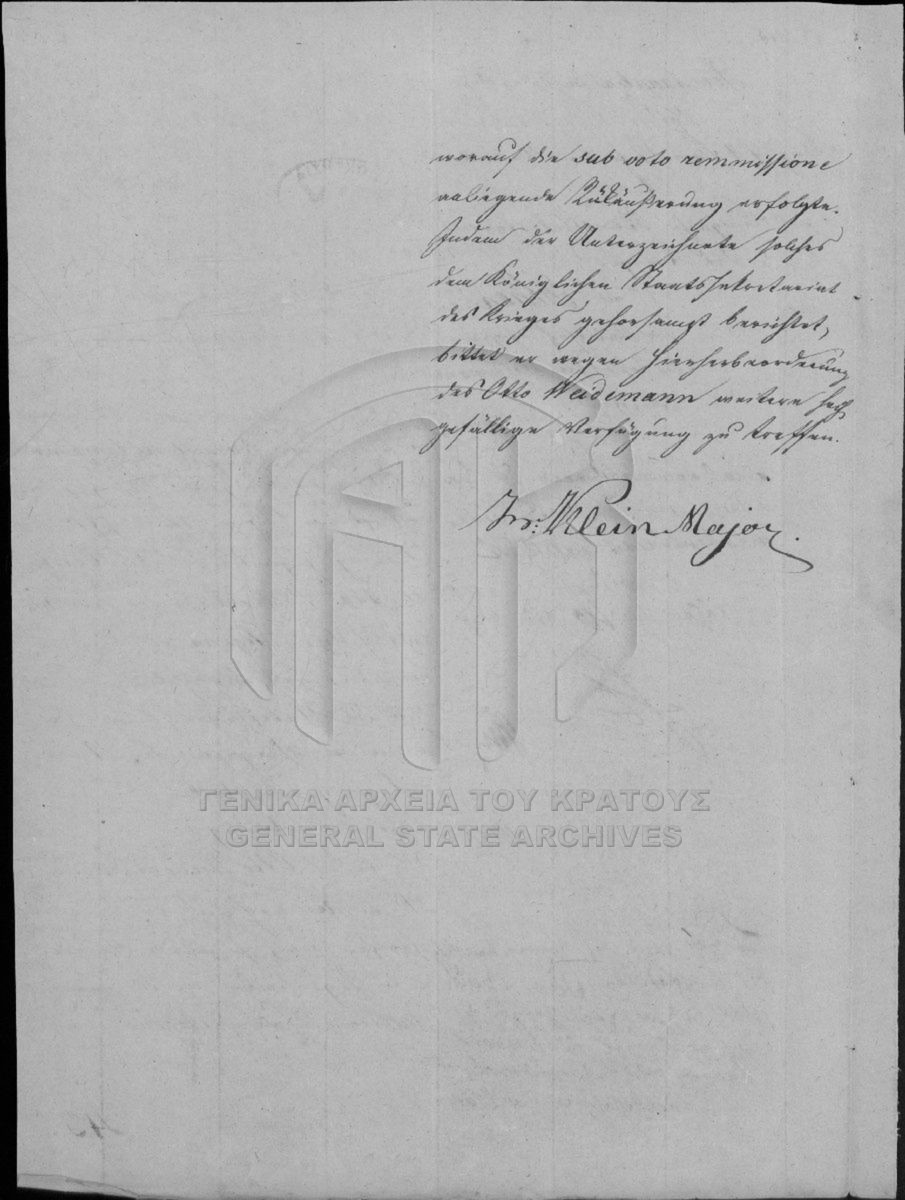 worauf die sub voto remmissione
anliegende Rükäußerung erfolgte.
Indem der Unterzeichnete solches
dem Königlichen Staats Sekretariat
des Krieges gehorsamst berichtet,
bittet er wegen Hierherbeorderung
des Otto Weidemann weitere
gefällige Verfügung zu treffen.
Klein Major.
ΓΕΝΙΚΑ ΑΡΧΕΙΑ ΤΟΥ ΚΡΑΤΟΥΣ
GENERAL STATE ARCHIVES